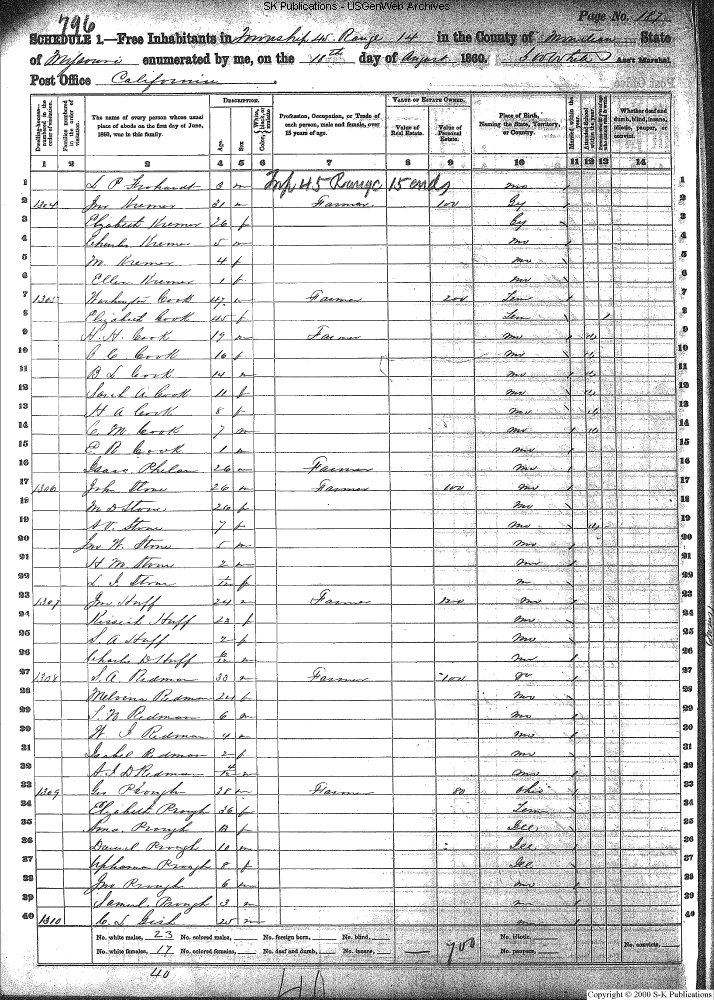 SK Publications - USGenWeb Archives
796
Page No. 167
SCHEDULE 1.—Free Inhabitants in Township 45 Range 14 in the County of State
of Missouri enumerated by me, on the 18th day of August 1860. Ass't Marshal.
Post Office California
DESCRIPTION. VALUE OF ESTATE OWNED.
Dwelling-houses—numbered in the order of visitation. Families numbered in the order of visitation. The name of every person whose usual place of abode on the first day of June, 1860, was in this family. Age. Sex. Color, Profession, Occupation, or Trade of each person, male and female, over 15 years of age. Value of Real Estate. Value of Personal Estate. Place of Birth, Naming the State, Territory, or Country. Married within the year. Attended School within the year. Whether deaf and dumb, blind, insane, idiotic, pauper, or convict.
1 2 3 4 5 6 7 8 9 10 11 12 13 14
1 L P 3 m Twp 45 Range 15 ends mo 1
2 1304 Jno Kremer 31 m Farmer 100 Ky 2
3 Elizabeth Kremer 26 f Ky 3
4 Charles Kremer 5 m mo 4
5 M. Kremer 4 f mo 5
6 Ellen Kremer 1 f mo 6
7 1305 Washington Cook 47 m Farmer 200 Ten 7
8 Elizabeth Cook 45 f Ten 1 8
9 H. H. Cook 19 m Farmer mo 9
10 C C Cook 16 f mo 10
11 B L Cook 14 m mo 11
12 Sarah A Cook 11 f mo 12
13 H A Cook 8 f mo 13
14 C. M Cook 7 m mo 14
15 E R Cook 1 m mo 15
16 Isaac Phelan 26 m Farmer mo 16
17 1306 John Stone 26 m Farmer 100 mo 17
18 M D Stone 26 f mo 18
19 A. V. Stone 7 f mo 19
20 Jno W. Stone 5 m mo 20
21 H M Stone 2 m mo 21
22 L. J. Stone f m 22
23 1307 Jno Huff 24 m Farmer mo 23
24 Huff 23 f mo 24
25 S. A Huff 2 f mo 25
26 Charles D Huff m mo 26
27 1308 S. A. Redman 33 m Farmer 100 27
28 Melvina Redman 24 f mo 28
29 S. N Redman 6 m mo 29
30 W J Redman 4 m mo 30
31 Isabel Redman 2 f mo 31
32 A. J D Redman m mo 32
33 1309 Geo Prough 38 m Farmer 80 Ohio 33
34 Elizabeth Prough 36 f Tenn 34
35 Prough f Ill 35
36 Daniel Prough 10 m Ill 36
37 Prough 8 f Ill 37
38 Jno Prough 6 m mo 38
39 Samuel Prough 3 m 39
40 1310 C. L Gish 25 m 40
No. white males, 23 No. colored males, No. foreign born, No. blind, No. idiotic,
No. white females, 17 No. colored females, No. deaf and dumb, No. insane, 700 No. paupers, No. convicts,
40
40
Copyright © 2000 S-K Publications